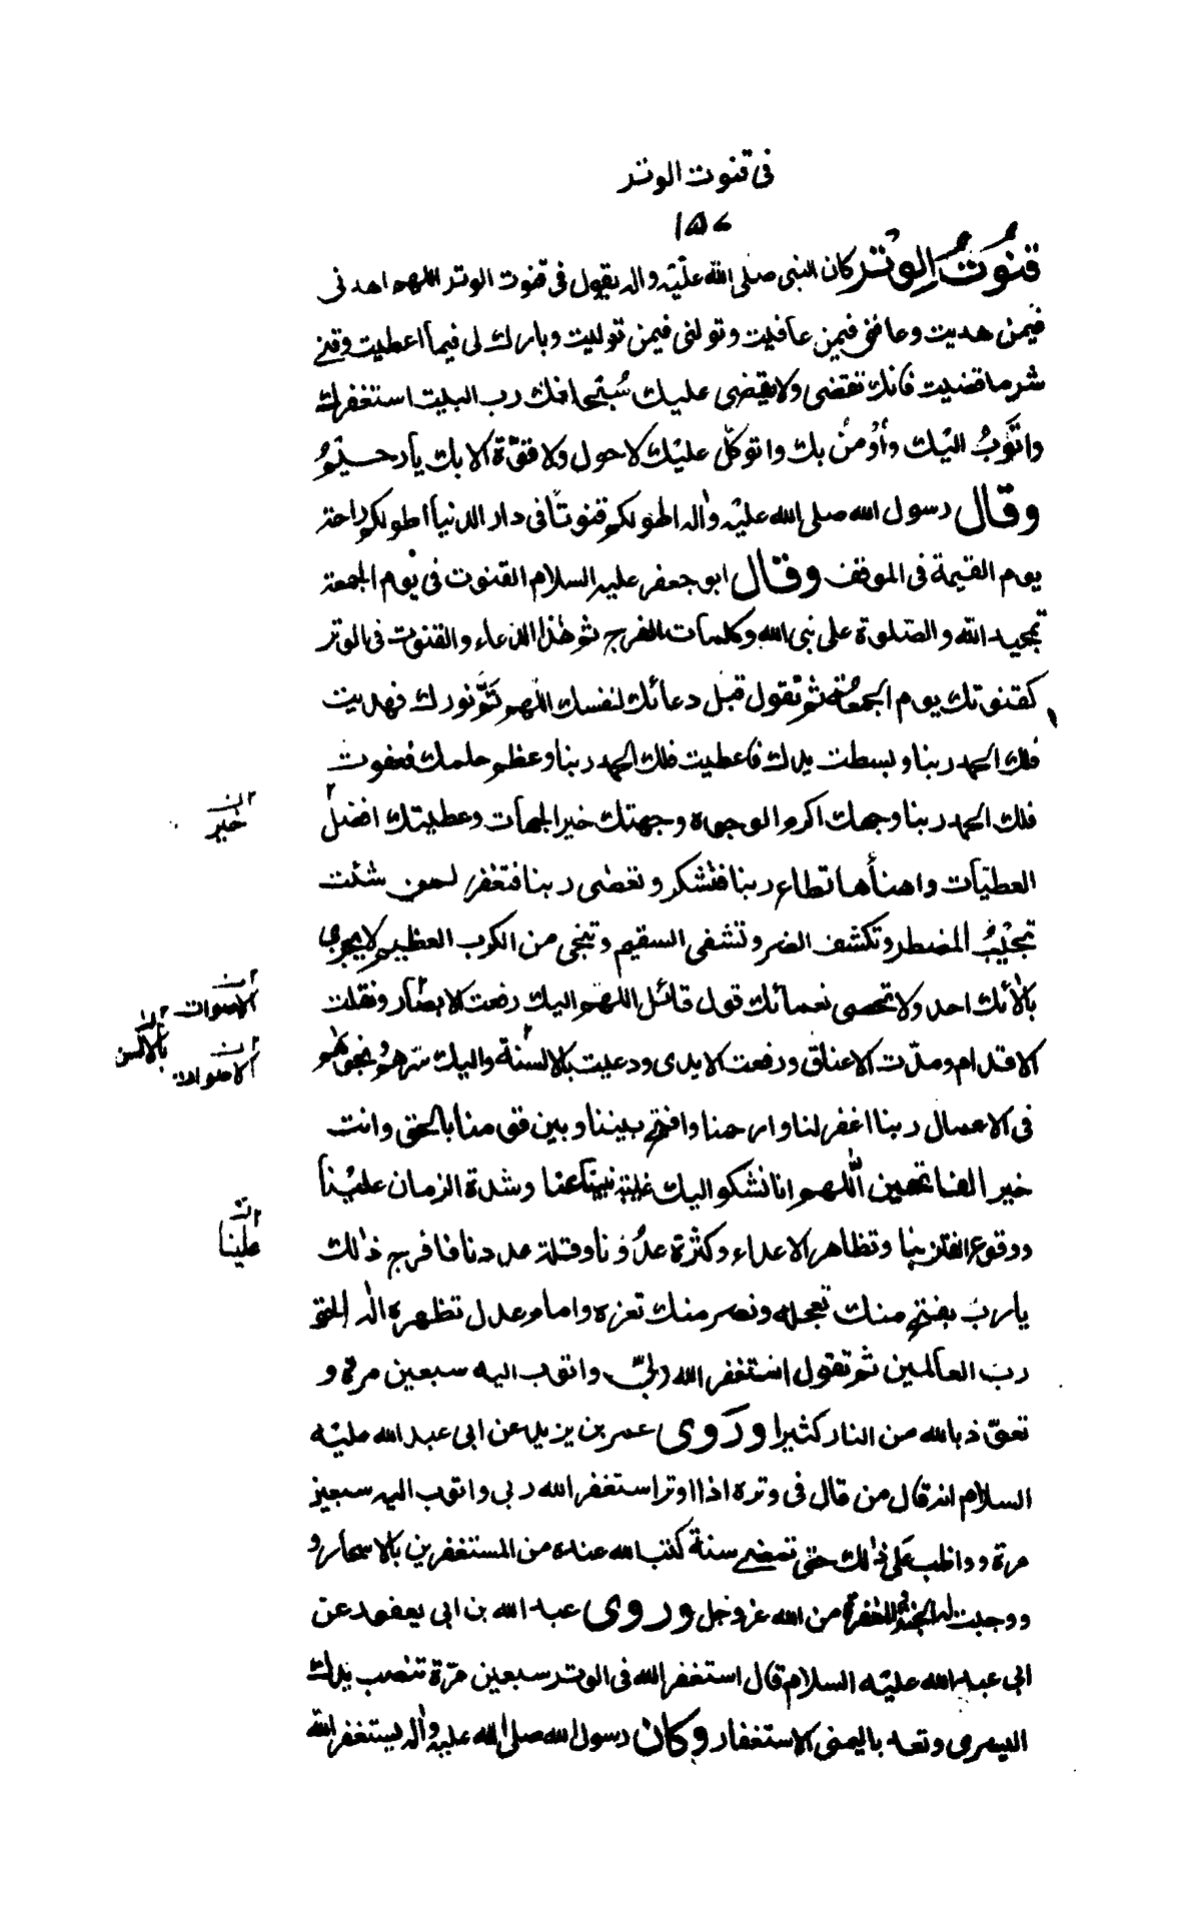 فى قنوت الوتر
١٥٧
قنُوتُ الِوتْر كان النبى صلى الله عليْه واله يقول فى قنوت الوتر اللهم اهدنى
فيمن هديت وعافنى فيمن عافيت وتولنى فيمن توليت وبارك لى فيما اعطيت وقنى
شر ما قضيت فانك تقضى ولا يقضى عليك سُبْحانك رب البيت استغفرك
واتوبُ اليْك وأومنُ بك واتوكّل عليْك لا حول ولا قوّة الا بك يا رحيْمُ
وقال رسول الله صلى الله عليْه واله اطولكم قنوتًا فى دار الدنيا اطولكم راحة
يوم القيمة فى الموقف وقال ابو جعفر عليه السلام القنوت فى يْوم الجمعة
تمجيد الله والصلوة على نبى الله وكلمات الفرج ثم هٰذا الدعاء والقنوت فى الوتر
كقنوتك يوم الجمعُة ثم تقول قبْل دعائك لنفسك اللهم تَمّ نورك فهديت
فلك الحمد ربنا وبسطت يدك فاعطيت فلك الحمد ربنا وعظم حلمك فعفوت
فلك الحمد ربنا وجهك اكرم الوجوه وجهتك خير الجهات وعطيتك افضل
خير
العطيّات واهنأها تطاع ربنا فتشكر وتعصى ربنا فتغفر لمن شئت
تجيْبُ المضطر وتكشف الضر وتشفى السقيم وتنجى من الكرب العظيم لا يجزى
بالائك احد ولا يحصى نعمائك قول قائل اللهم اليك رفعت الابصار ونقلت
الاصوات
الاقدام ومدّت الاعناق ورفعت الايدى ودعيت بالالسنة واليك سرهمْ ونجوٰهم
بالالسن
الاصوات
فى الاعمال ربنا اغفر لنا وارحمنا وافتح بيننا وبين قومنا بالحق وانت
خير الفاتحين اللّٰهم انا نشكو اليك غيْبة نبيّنا عنا وشدة الزمان عليْنا
ووقوع الفتن بنا وتظاهر الاعداء وكثرة عدُوّنا وقلة عددنا فافرج ذٰلك
علينا
يا ربّ بفتح منك تعجله ونصر منك تعزه وامام عدل تظهره الٰه الحق
ربّ العالمين ثم تقول استغفر الله ربّى واتوب اليه سبعين مرة و
تعوّذ بالله من النار كثيرا ورَوى عمر بن يزيد عن ابى عبد الله عليْه
السلام انه قال من قال فى وتره اذا اوتر استغفر الله ربى واتوب اليه سبعين
مرة وواظب على ذٰلك حتى تمضى سنة كتب الله عنده من المستغفرين بالاسحار و
ووجبت له الجنة والمغفرة من الله عز وجل وروى عبد الله بن ابى يعفور عن
ابى عبد الله عليْه السلام قال استغفر الله فى الوتر سبعين مرّة تنصب يدك
اليسرى وتعد باليمنى الاستغفار وكان رسول الله صلى الله عليْه واٰله يستغفر الله